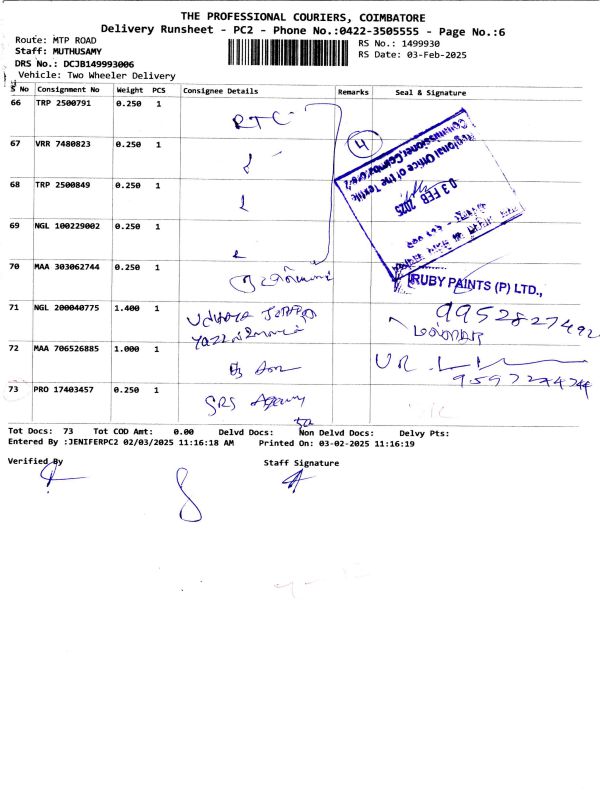 THE PROFESSIONAL COURIERS, COIMBATORE
Delivery Runsheet - PC2 - Phone No.:0422-3505555 - Page No.:6
Route: MTP ROAD
RS No.: 1499930
Staff: MUTHUSAMY
RS Date: 03-Feb-2025
DRS No.: DCJB149993006
Vehicle: Two Wheeler Delivery
S No Consignment No Weight PCS Consignee Details Remarks Seal & Signature
66 TRP 2500791 0.250 1 RTC
67 VRR 7480823 0.250 1
68 TRP 2500849 0.250 1
4
Regional Office of the Textile
Commissioner, Coimbatore-2
03 FEB 2025
69 NGL 100229002 0.250 1
70 MAA 303062744 0.250 1
RUBY PAINTS (P) LTD.,
71 NGL 200040775 1.400 1
9952827492
72 MAA 706526885 1.000 1
73 PRO 17403457 0.250 1 SRS Agency
Tot Docs: 73 Tot COD Amt: 0.00 Delvd Docs: Non Delvd Docs: Delvy Pts:
Entered By :JENIFERPC2 02/03/2025 11:16:18 AM Printed On: 03-02-2025 11:16:19
Verified By
Staff Signature